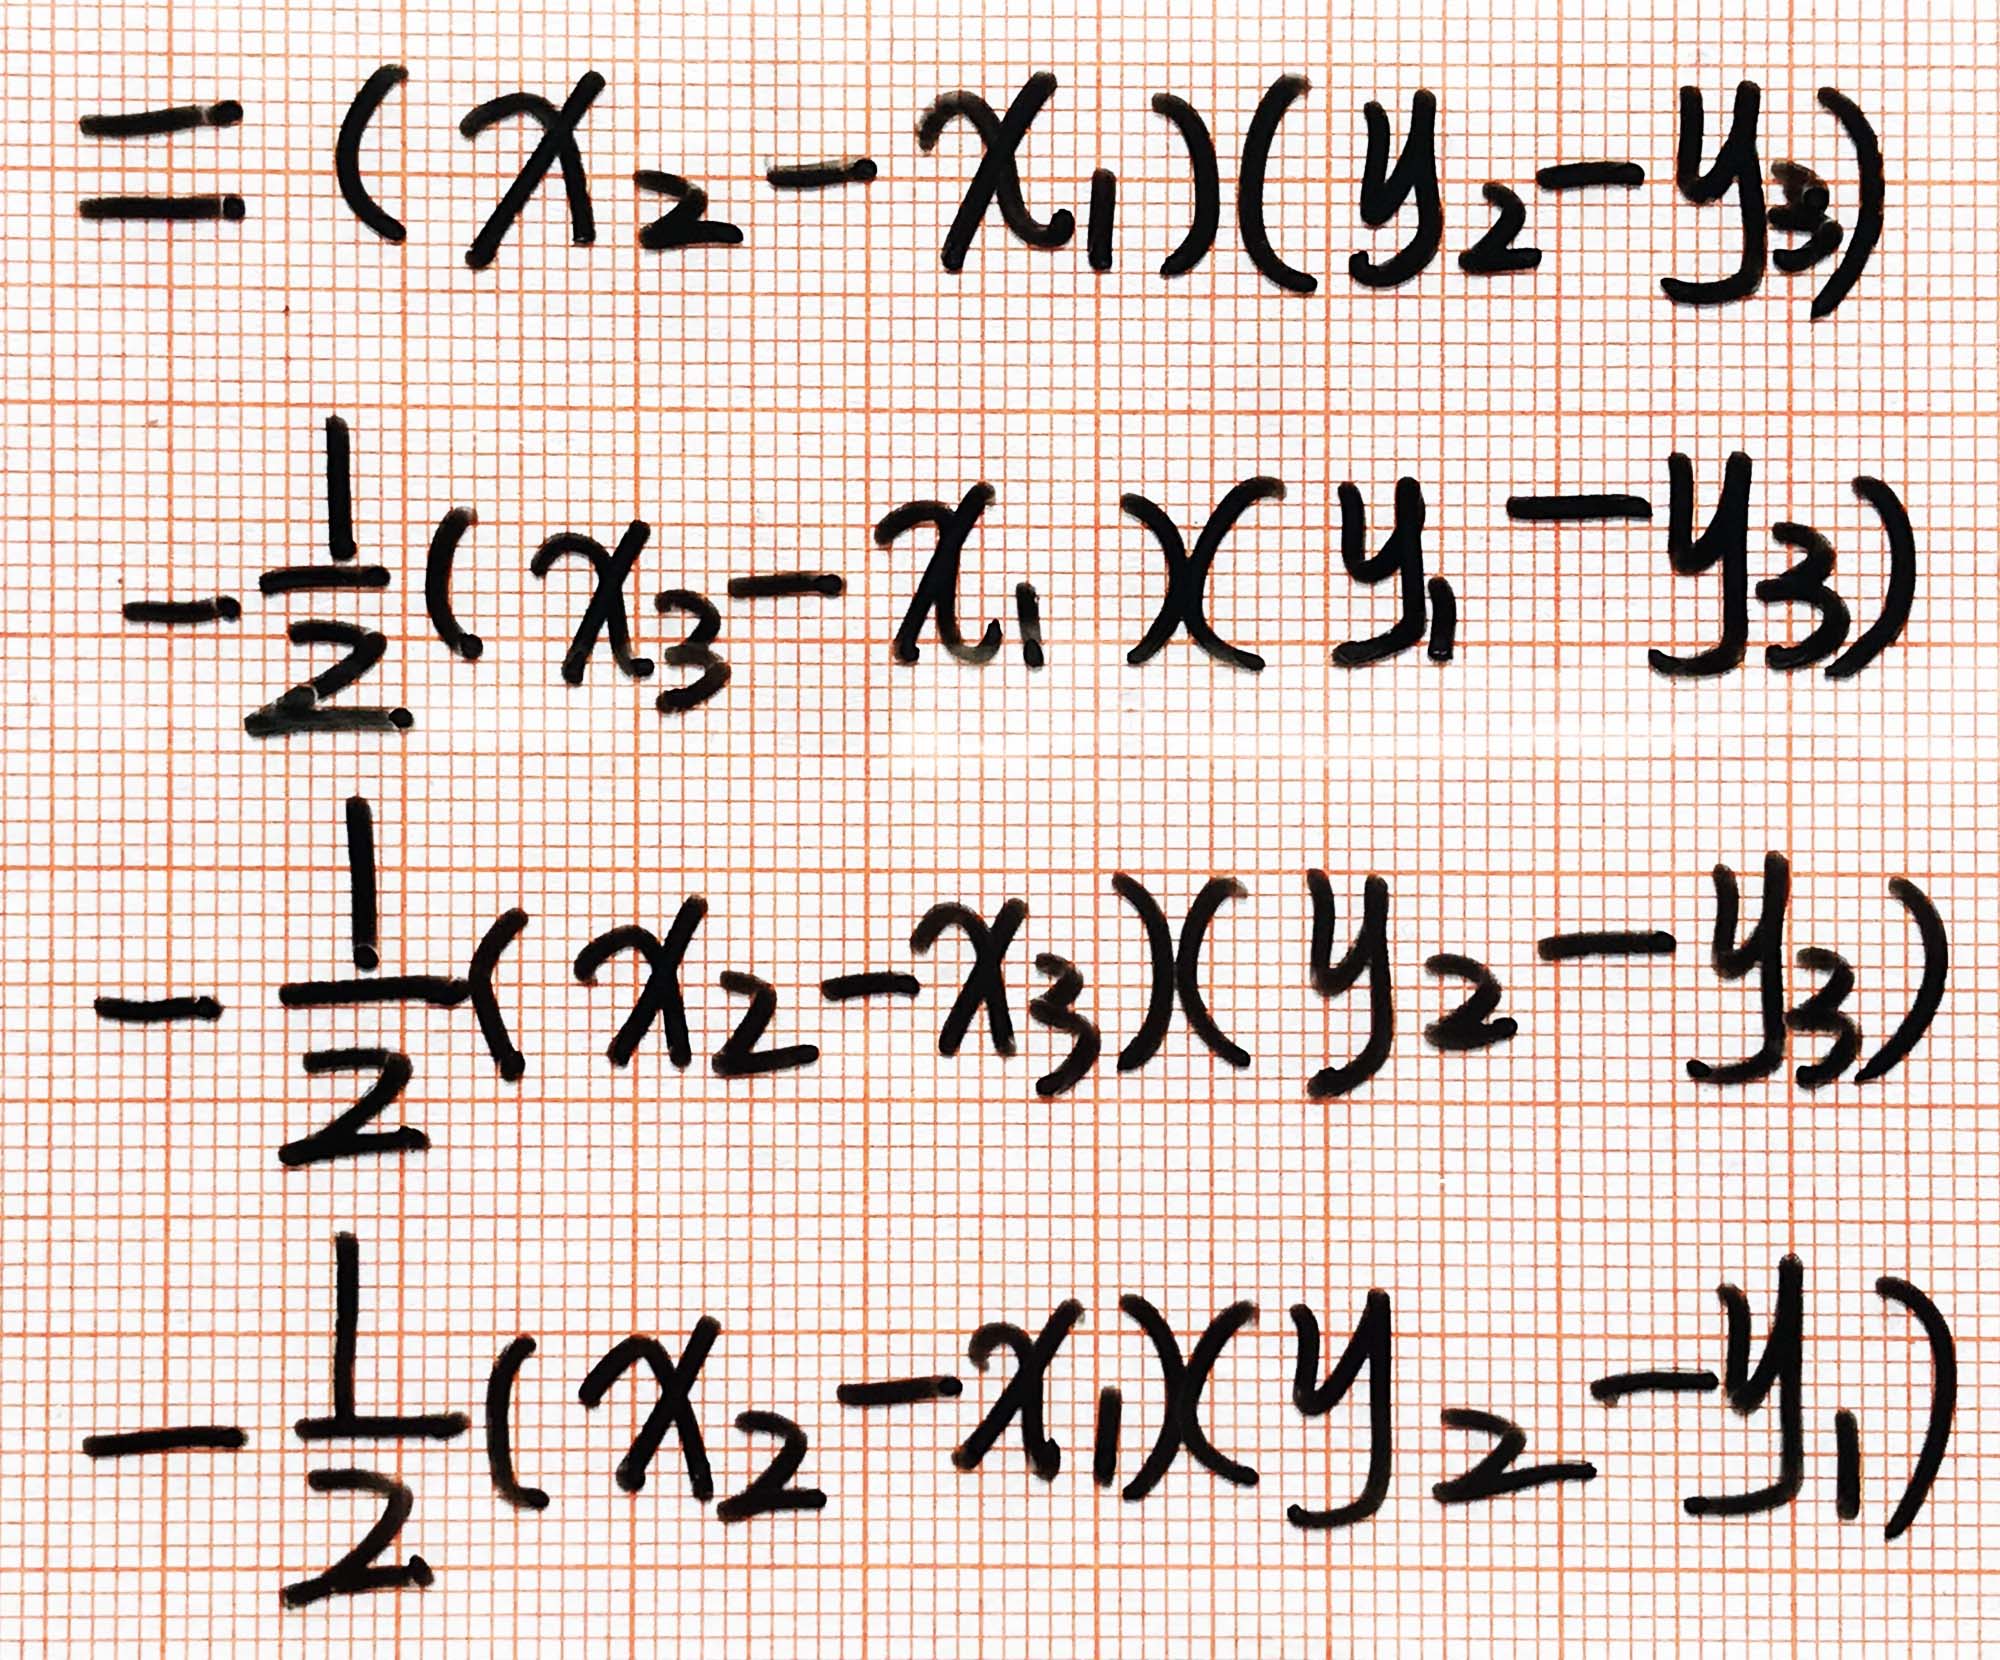 = (x₂ - x₁)(y₂ - y₃)
- ½(x₃ - x₁)(y₁ - y₃)
- ½(x₂ - x₃)(y₂ - y₃)
- ½(x₂ - x₁)(y₂ - y₁)